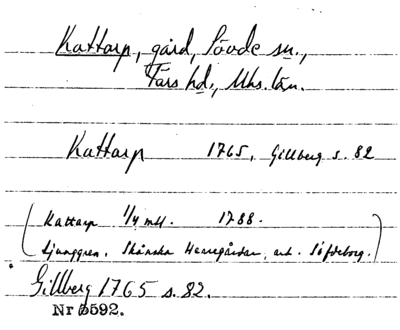 Kattarp, gård, Sövde sn.,
Färs hd., Mhs. län.
Kattarp 1765, Gillberg s. 82
(Kattarp 1/4 mtl. 1788.
Ljunggren, Skånska Herregårdar, art. Söfdeborg.)
Gillberg 1765 s. 82.
Nr 5592.